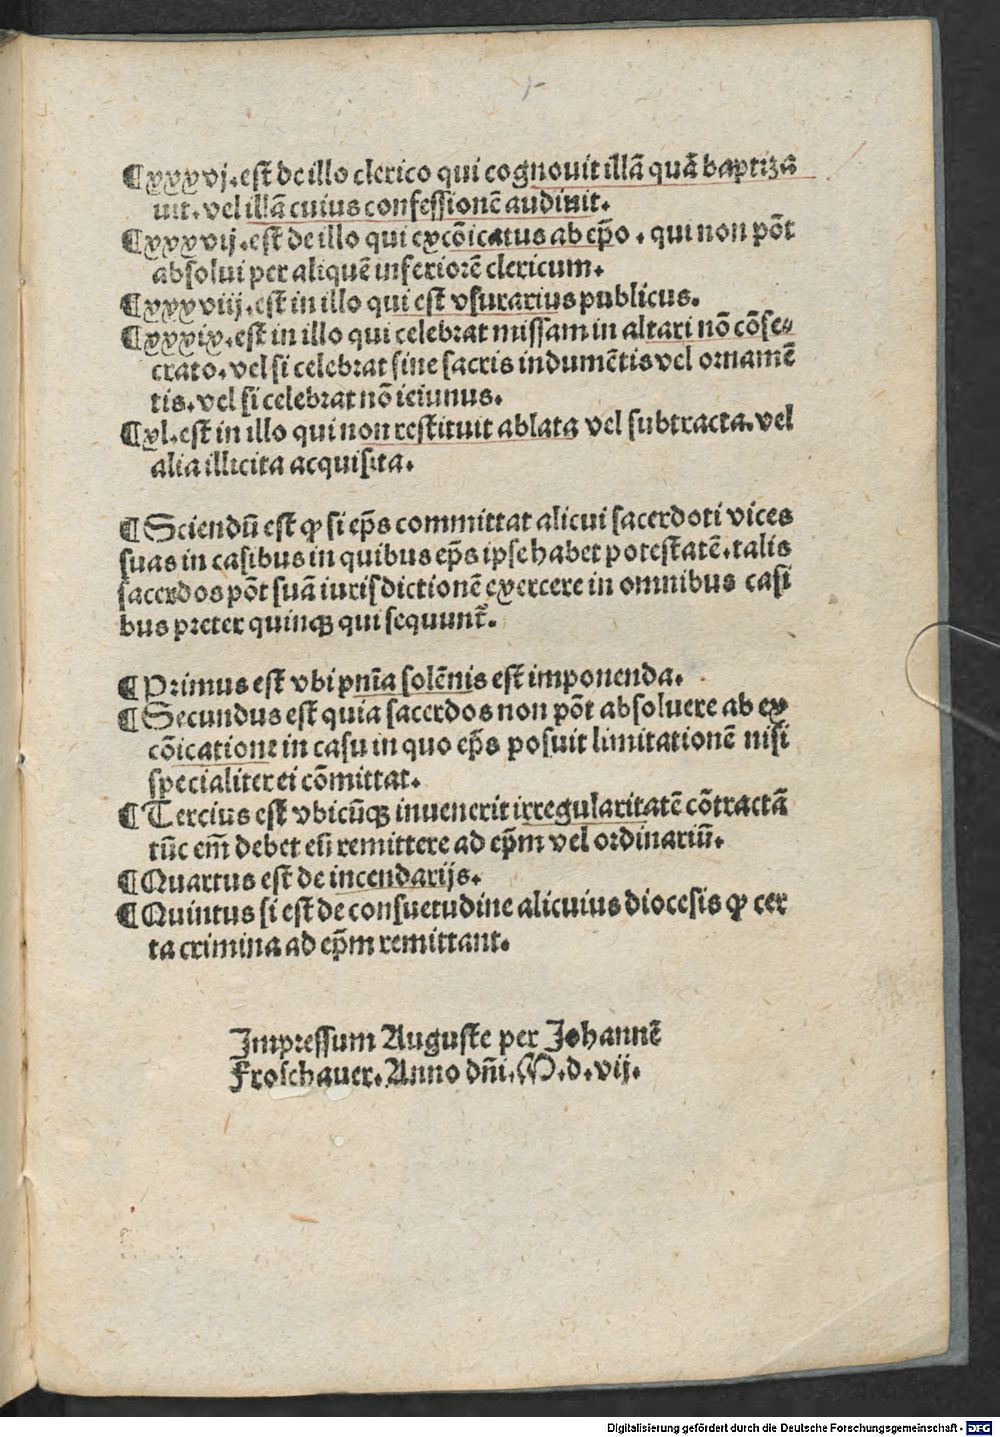 ¶xxxvj. est de illo clerico qui cognouit illã quã baptiza
uit. vel illã cuius confessionẽ audiuit.
¶xxxvij. est de illo qui excõicatus ab ep̃o. qui non põt
absolui per aliquẽ inferiorẽ clericum.
¶xxxviij. est in illo qui est vsurarius publicus.
¶xxxix. est in illo qui celebrat missam in altari nõ cõse⸗
crato. vel si celebrat sine sacris indumẽtis vel ornamẽ
tis. vel si celebrat nõ ieiunus.
¶xl. est in illo qui non restituit ablata vel subtracta. vel
alia illicita acquisita.
¶Sciendũ est ꝙ si ep̃s committat alicui sacerdoti vices
suas in casibus in quibus ep̃s ipse habet potestatẽ. talis
sacerdos põt suã iurisdictionẽ exercere in omnibus casi
bus preter quinqꝫ qui sequunt̃.
¶Primus est vbi pñia solẽnis est imponenda.
¶Secundus est quia sacerdos non põt absoluere ab ex
cõicatione in casu in quo ep̃s posuit limitationẽ nisi
specialiter ei cõmittat.
¶Tercius est vbicũqꝫ inuenerit irregularitatẽ cõtractã
tũc em̃ debet eũ remittere ad ep̃m vel ordinariũ.
¶Quartus est de incendarijs.
¶Quintus si est de consuetudine alicuius diocesis ꝙ cer
ta crimina ad ep̃m remittant.
Impressum Auguste per Johannẽ
Froschauer. Anno dñi. M.d.vij.
Digitalisierung gefördert durch die Deutsche Forschungsgemeinschaft - DFG